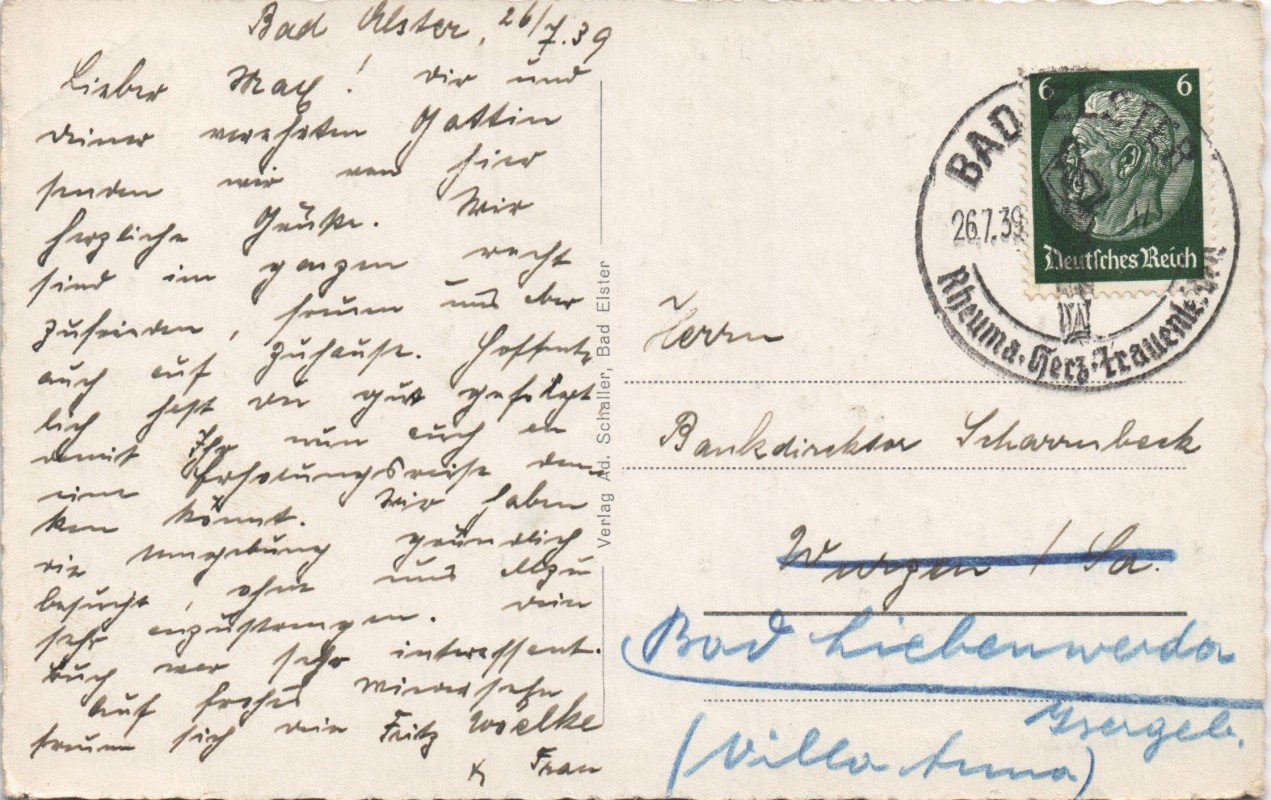 Bad Elster, 26/7.39
Lieber Max! Dir und
deiner verehrten Gattin
senden wir von hier
herzliche Grüße. Wir
sind im ganzen recht
zufrieden, freuen uns aber
auch auf Zuhause. Hoffent-
lich hast du gut gefolgt
damit Ihr nun auch an
eine Erholungsreise den-
ken könnt. Wir haben
die Umgebung gründlich
besucht, ohne uns allzu
sehr anzustrengen. Dein
Buch war sehr interessant.
Auf frohes Wiedersehn
freuen sich dein Fritz Woelke
& Frau
Verlag Ad. Schaller, Bad Elster
6 6
Deutsches Reich
BAD ELSTER
26.7.39
Rheuma·Herz·Frauenleiden
Herrn
Bankdirektor Scharrnbeck
Wurzen / Sa.
Bad Liebenwerda
(Villa Anna)